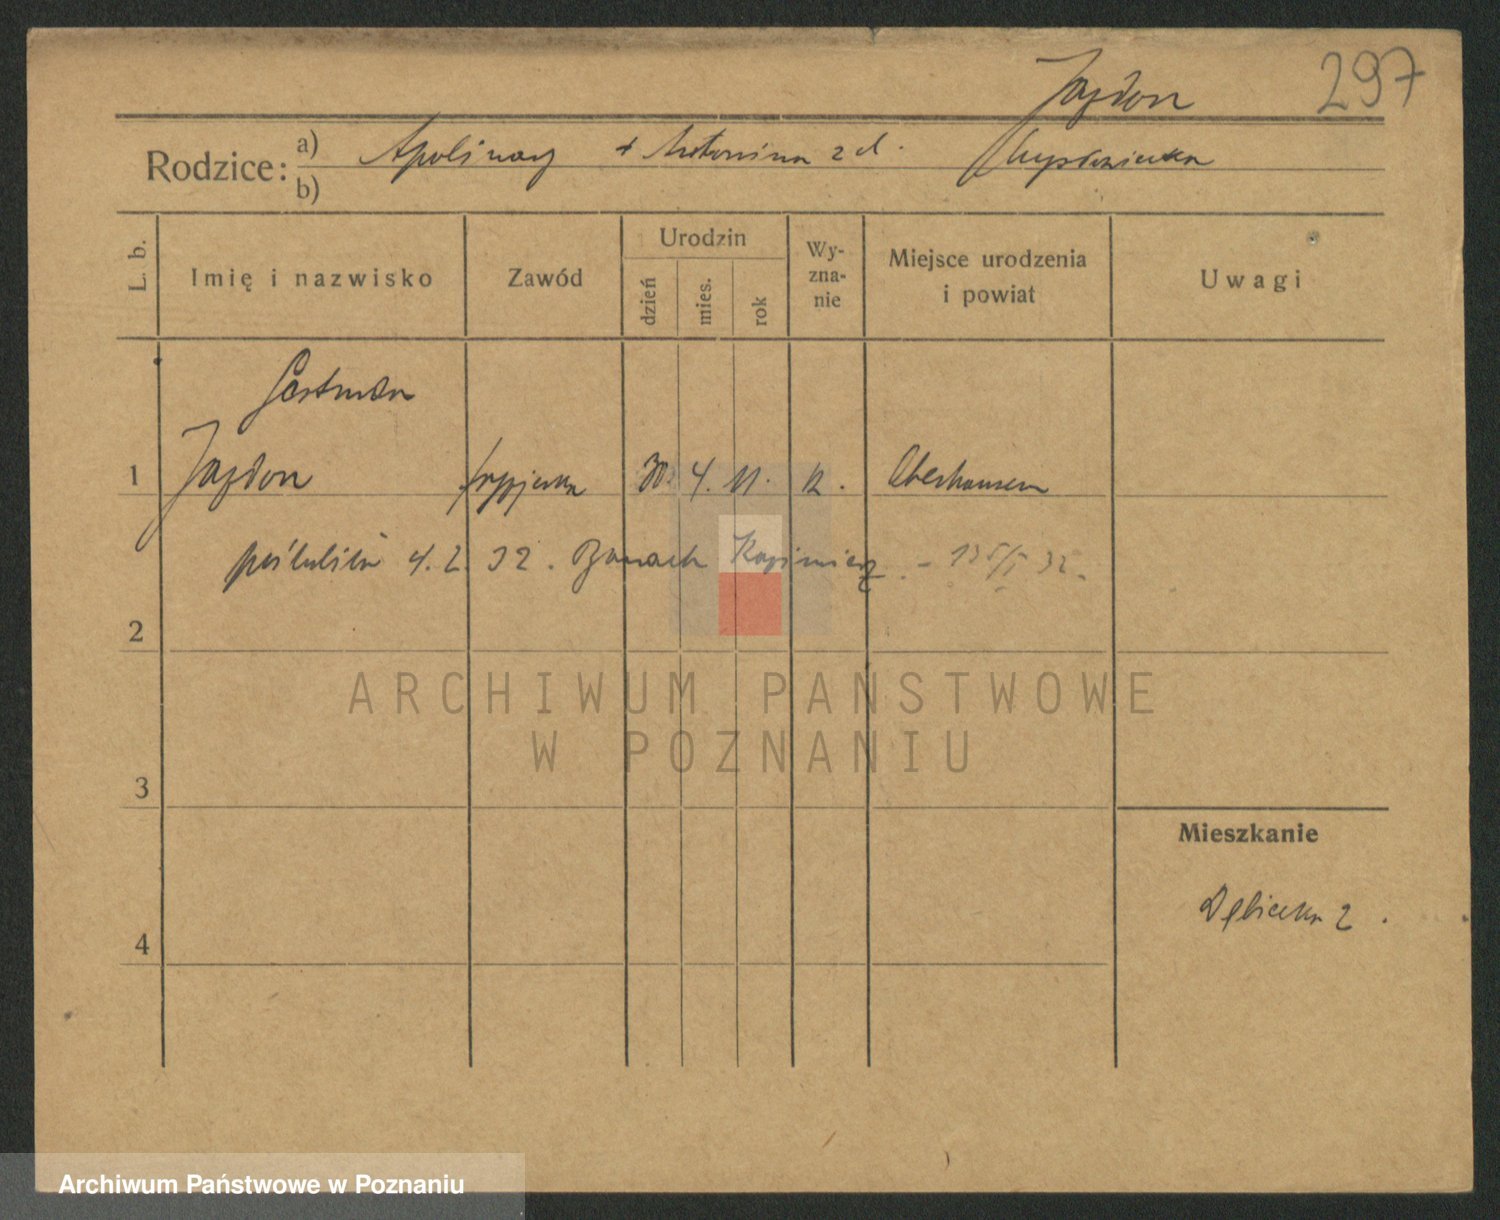 Jazdon 297
Rodzice: a) Apolinary + Antonina z d.
b)
L. b.
Imię i nazwisko
Zawód
Urodzin
dzień
mies.
rok
Wy-
zna-
nie
Miejsce urodzenia
i powiat
Uwagi
1 Jazdon fryzjerka 30. 4. 11. Oberhausen
poślubiła 4. 2. 32. Banach Kazimierz
2
3
4
Mieszkanie
Dębiecka 2.
ARCHIWUM PAŃSTWOWE
W POZNANIU
Archiwum Państwowe w Poznaniu